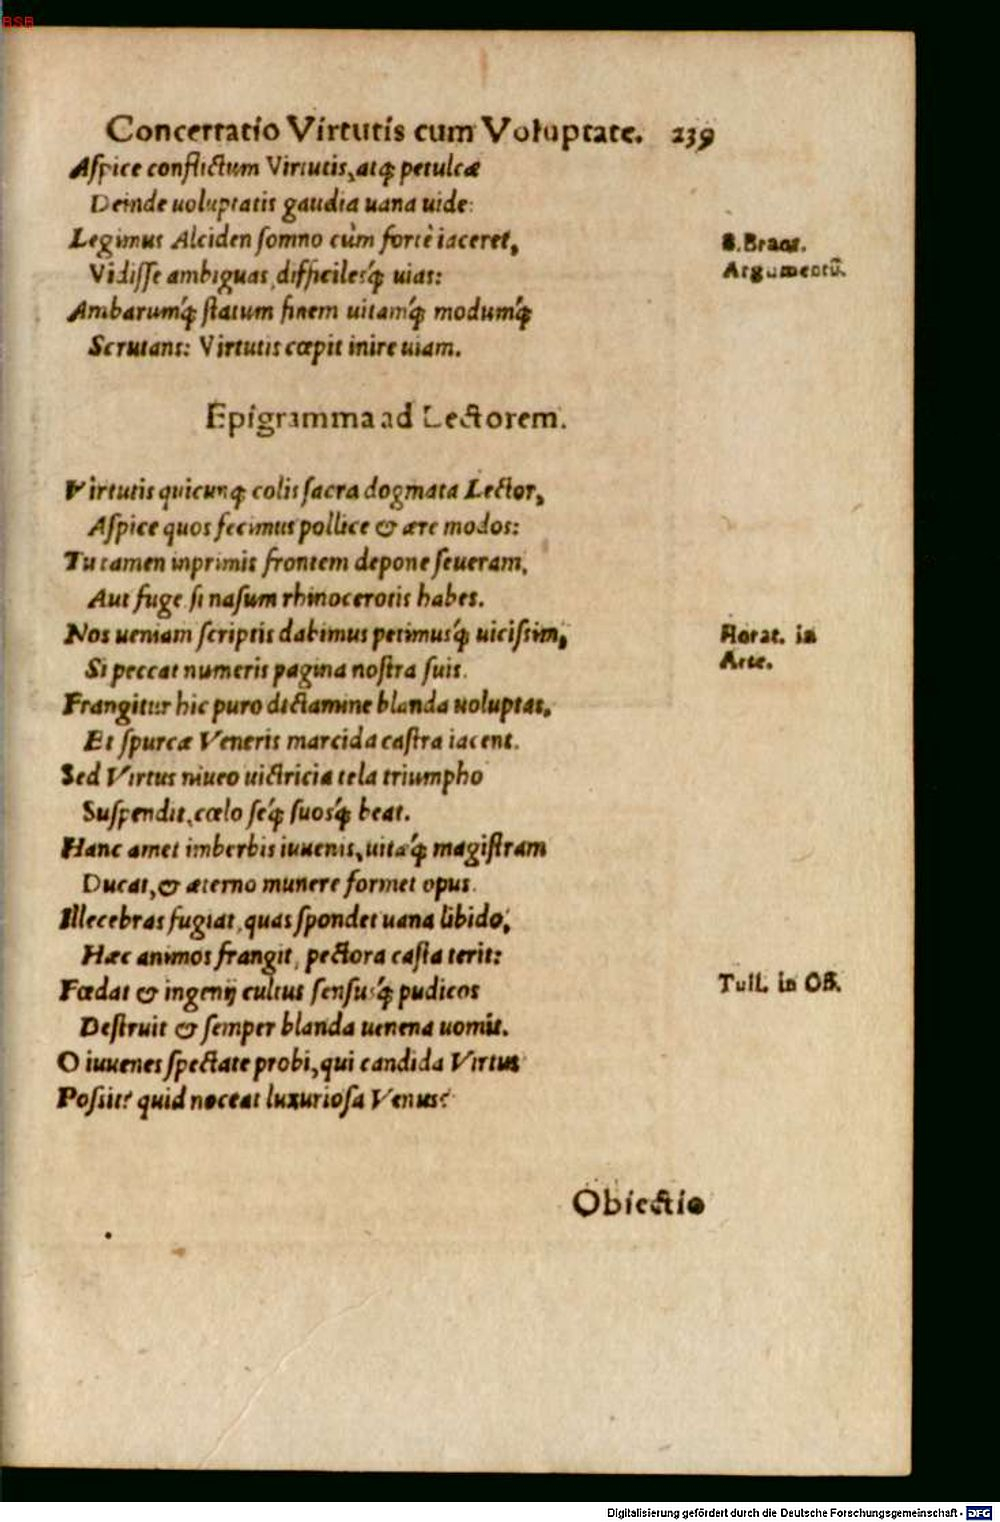 BSB
Concertatio Virtutis cum Voluptate. 239
Aspice conflictum Virtutis, atq; petulcæ
Deinde uoluptatis gaudia uana uide:
Legimus Alciden somno cùm fortè iaceret,
S. Brant.
Vidisse ambiguas, difficilesq́; uias:
Argumentũ.
Ambarumq́; statum finem uitamq́; modumq́;
Scrutans: Virtutis cœpit inire uiam.
Epigramma ad Lectorem.
Virtutis quicunq; colis sacra dogmata Lector,
Aspice quos fecimus pollice & ære modos:
Tu tamen inprimis frontem depone seueram,
Aut fuge si nasum rhinocerotis habes.
Nos ueniam scriptis dabimus petimusq́; uicissim,
Horat. in
Si peccat numeris pagina nostra suis.
Arte.
Frangitur hic puro dictamine blanda uoluptas,
Et spurcæ Veneris marcida castra iacent.
Sed Virtus niueo uictricia tela triumpho
Suspendit, cœlo seq́; suosq́; beat.
Hanc amet imberbis iuuenis, uitæq́; magistram
Ducat, & æterno munere formet opus.
Illecebras fugiat, quas spondet uana libido,
Hæc animos frangit, pectora casta terit:
Fœdat & ingenij cultus sensusq́; pudicos
Tull. in Off.
Destruit & semper blanda uenena uomit.
O iuuenes spectate probi, qui candida Virtus
Possit? quid noceat luxuriosa Venus?
Obiectio
Digitalisierung gefördert durch die Deutsche Forschungsgemeinschaft - DFG